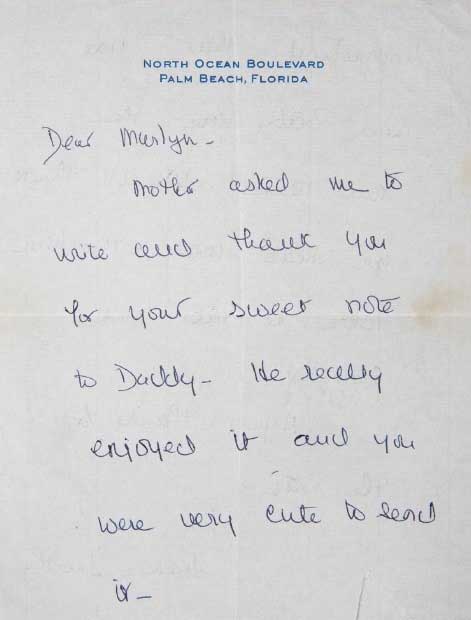 NORTH OCEAN BOULEVARD
PALM BEACH, FLORIDA
Dear Marlyn -
Mother asked me to
write and thank you
for your sweet note
to Daddy - He really
enjoyed it and you
were very cute to send
it -